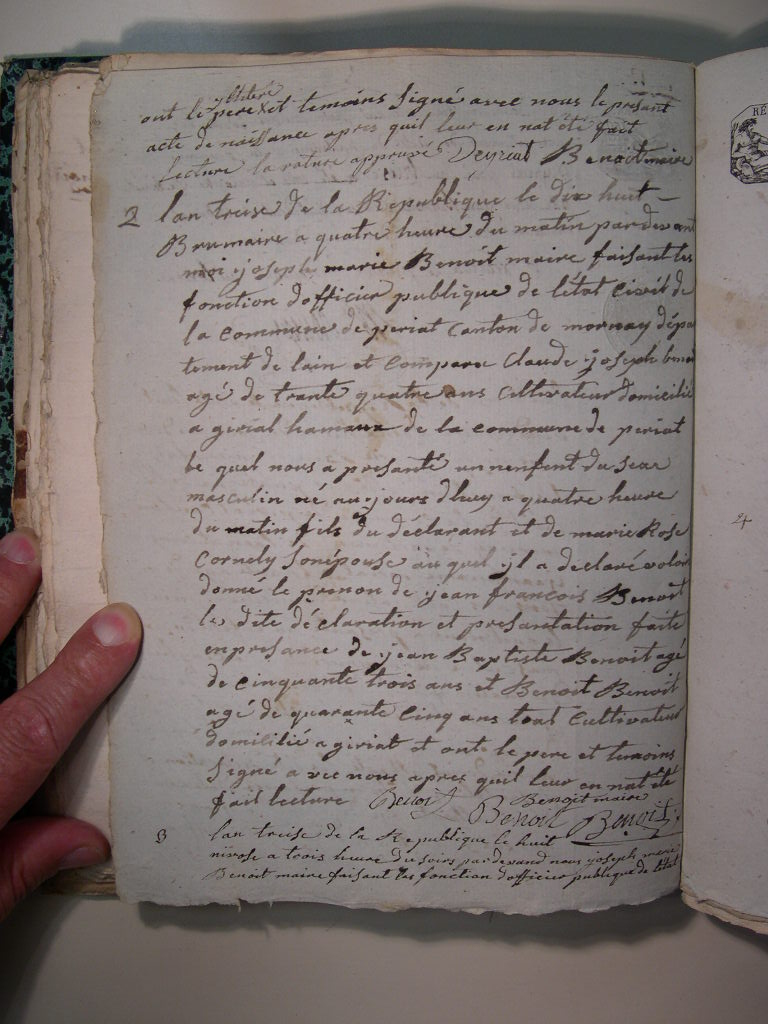 illiteré
ont le pere et temoins signé avec nous le présant
acte de naissance apres quil leur en nat été fait
lecture la rature approuvé Deyriat Benoit maire
2 lan treise de la Republique le dix huit
Brumaire a quatre heure du matin pardevant
moi joseph marie Benoit maire faisant les
fonction dofficier publique de létat civil de
la commune de periat canton de mornay dépa
tement de lain et compare Claude joseph benoi
agé de trante quatre ans cultivateur domicilié
a girial hamaux de la commune de periat
le quel nous a presanté un nenfent du sexe
masculin né au jours dhuy a quatre heure
du matin fils du déclarant et de marie Rose
Cornely sonépouse au quel jl a declaré voloir
donné le prenon de jean francois Benoit
les dite déclaration et presantation faite
enpresance de jean Baptiste Benoit agé
de cinquante trois ans et Benoit Benoit
agé de quarante cinq ans tout cultivateur
domicilié a giriat et ont le pere et temoins
signé avec nous apres quil leur en nat été
fait lecture Benoit Benoit maire
Benoit Benoit
3 lan treise de la Republique le huit
nivose a trois heure du soirs pardevand nous joseph marie
Benoit maire faisant les fonction dofficier publique de létat
RÉ
4